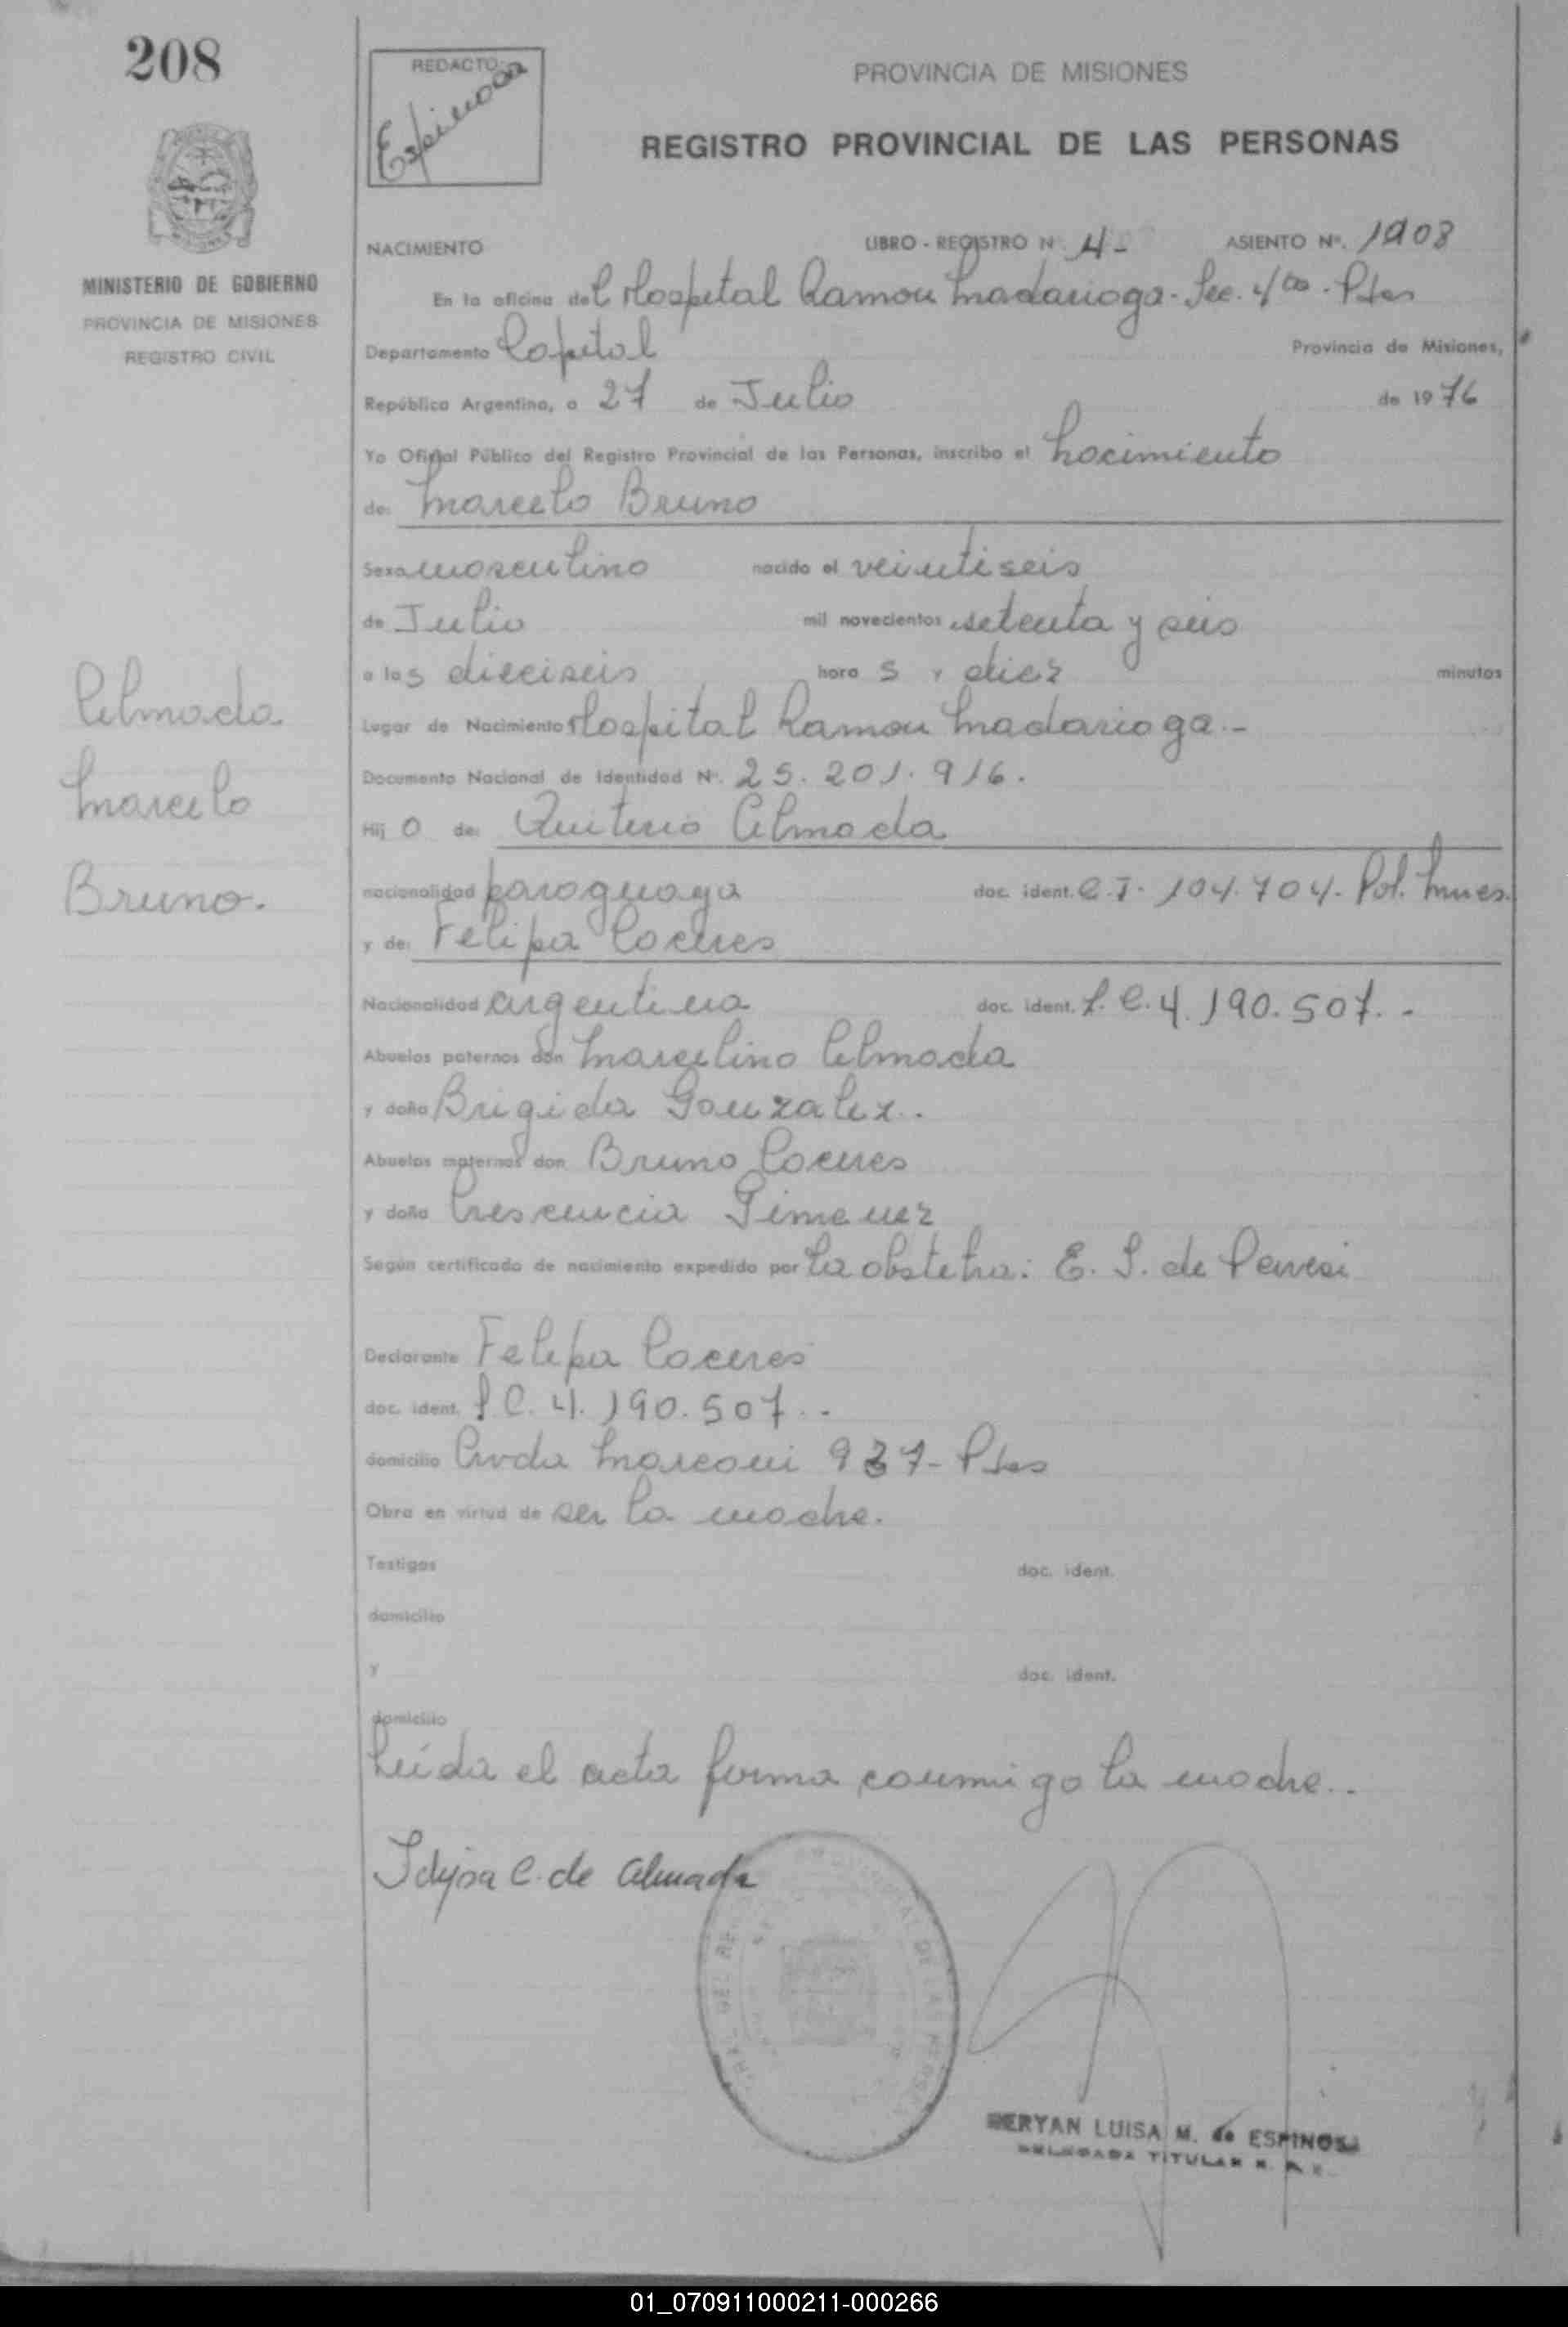 208
REDACTO:
Espinosa
PROVINCIA DE MISIONES
REGISTRO PROVINCIAL DE LAS PERSONAS
MINISTERIO DE GOBIERNO
PROVINCIA DE MISIONES
REGISTRO CIVIL
NACIMIENTO LIBRO - REGISTRO Nº 4- ASIENTO Nº. 1908
En la oficina del Hospital Ramon Madariaga - Sec. 4ta. Pdas
Departamento Capital Provincia de Misiones,
República Argentina, a 27 de Julio de 1976
Yo Oficial Público del Registro Provincial de las Personas, inscribo el Nacimiento
de: Marcelo Bruno
Sexo masculino nacido el veintiseis
de Julio mil novecientos setenta y seis
a las dieciseis hora s y diez minutos
Lugar de Nacimiento Hospital Ramon Madariaga.-
Documento Nacional de Identidad Nº. 25.201.916.
Hij o de: Quiterio Almada
nacionalidad paraguaya doc. ident. C.I. 104.704. Pol. Mnes.
y de: Felipa Caceres
Nacionalidad argentina doc. ident. L.C. 4.190.507.-
Abuelos paternos don Marcelino Almada
y doña Brigida Gonzalez.
Abuelos maternos don Bruno Caceres
y doña Crescencia Gimenez
Según certificado de nacimiento expedido por la obstetra: E. S. de
Declarante Felipa Caceres
doc. ident. L C. 4.190.507.-
domicilio Avda Marconi 937- Pdas
Obra en virtud de ser la madre.
Testigos doc. ident.
domicilio
y doc. ident.
domicilio
Leída el acta firma conmigo la madre.-
Almada
Marcelo
Bruno.
C. de Almada
BERYAN LUISA M. de ESPINOSA
DELEGADA TITULAR R. P.
01_070911000211-000266